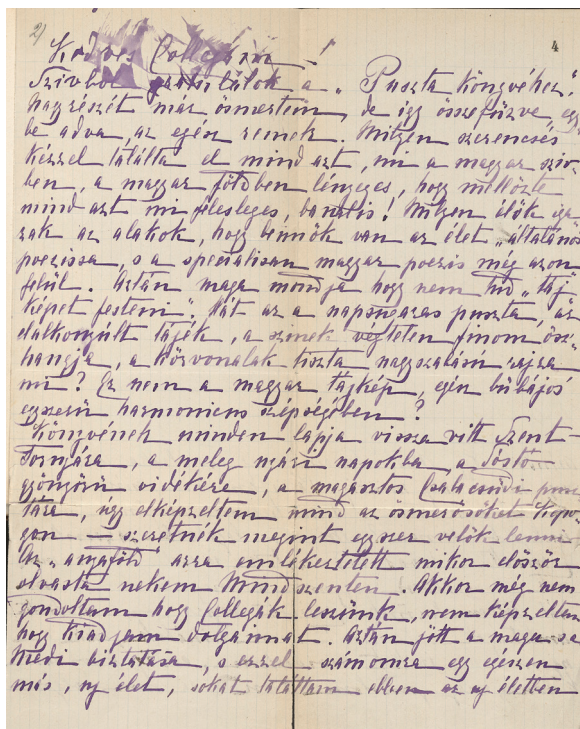 2)
4
Kedves Collegám!
Szivből gratulálok a „Puszta könyvéhez".
nagyrészét már ösmertem, de igy összefűzve, egy
be adva, az egész remek. Milyen szerencsés
kézzel találta el mind azt, mi a magyar sziv-
ben, a magyar földben lényeges, hogy mellőzte
mind azt mi felesleges, banális! Milyen élők iga
zak az alakok, hogy bennök van az élet „általános
poezissa, s a speciálisan magyar poezis még azon
felül. Aztán maga mondja hogy nem tud „táj"
képet festeni". Hát az a napsugaras puszta, az
elalkonyúlt tájék, a szinek végtelen finom ösz-
hangja, a körvonalak tiszta nagyszabású rajza
mi? Ez nem a magyar tájkép, egén bűbájos
egyszerű harmonicus szépségében?
Könyvének minden lapja vissza vitt Szent-
Tornyára, a meleg nyári napokba, a Sóstó
gyönyörű vidékére, a magasztos Csabacsüdi
tára, úgy elképzeltem mind az ösmerősöket
gon — szeretnék megint egyszer velök lenni
Az „anyaföld" arra emlékeztetett mikor először
olvasta nekem Mindszenten. Akkor még nem
gondoltam hogy Collegák leszünk, nem képzeltem
hogy kiadjam dolgaimat. Aztán jött a maga sa
Médi biztatása, s ezzel számomra egy egészen
más, uj élet, sokat találtam ebben az uj életben